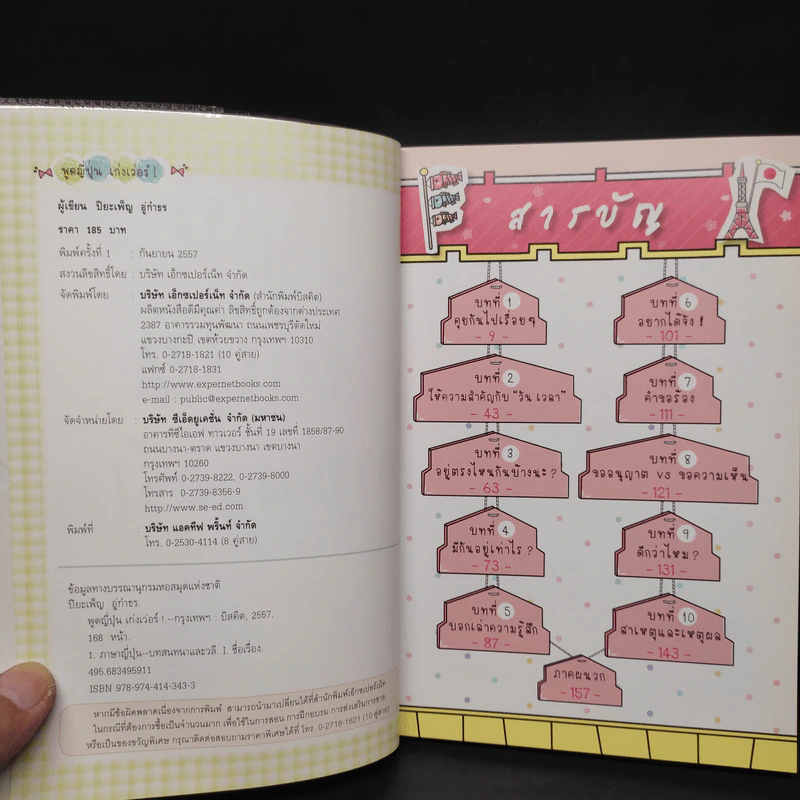 พูดญี่ปุ่น เก่งเวอร์ !
ผู้เขียน ปิยะเพ็ญ อู่กำธร
ราคา 185 บาท
พิมพ์ครั้งที่ 1 : กันยายน 2557
สงวนลิขสิทธิ์โดย : บริษัท เอ็กซเปอร์เน็ท จำกัด
จัดพิมพ์โดย : บริษัท เอ็กซเปอร์เน็ท จำกัด (สำนักพิมพ์บิสคิต)
ผลิตหนังสือดีมีคุณค่า ลิขสิทธิ์ถูกต้องจากต่างประเทศ
2387 อาคารรวมทุนพัฒนา ถนนเพชรบุรีตัดใหม่
แขวงบางกะปิ เขตห้วยขวาง กรุงเทพฯ 10310
โทร. 0-2718-1821 (10 คู่สาย)
แฟกซ์ 0-2718-1831
http://www.expernetbooks.com
e-mail : public@expernetbooks.com
จัดจำหน่ายโดย : บริษัท ซีเอ็ดยูเคชั่น จำกัด (มหาชน)
อาคารทีซีไอเอฟ ทาวเวอร์ ชั้นที่ 19 เลขที่ 1858/87-90
ถนนบางนา-ตราด แขวงบางนา เขตบางนา
กรุงเทพฯ 10260
โทรศัพท์ 0-2739-8222, 0-2739-8000
โทรสาร 0-2739-8356-9
http://www.se-ed.com
พิมพ์ที่ : บริษัท แอคทีฟ พริ้นท์ จำกัด
โทร. 0-2530-4114 (8 คู่สาย)
ข้อมูลทางบรรณานุกรมหอสมุดแห่งชาติ
ปิยะเพ็ญ อู่กำธร.
พูดญี่ปุ่น เก่งเว่อร์ !.--กรุงเทพฯ : บิสคิต, 2557.
168 หน้า.
1. ภาษาญี่ปุ่น--บทสนทนาและวลี. I. ชื่อเรื่อง.
495.683495911
ISBN 978-974-414-343-3
หากมีข้อผิดพลาดเนื่องจากการพิมพ์ สามารถนำมาเปลี่ยนได้ที่สำนักพิมพ์เอ็กซเปอร์เน็ท
ในกรณีที่ต้องการซื้อเป็นจำนวนมาก เพื่อใช้ในการสอน การฝึกอบรม การส่งเสริมการขาย
หรือเป็นของขวัญพิเศษ กรุณาติดต่อสอบถามราคาพิเศษได้ที่ โทร. 0-2718-1821 (10 คู่สาย)
สารบัญ
บทที่ 1
คุยกันไปเรื่อยๆ
- 9 -
บทที่ 2
ให้ความสำคัญกับ "วัน เวลา"
- 43 -
บทที่ 3
อยู่ตรงไหนกันบ้างนะ ?
- 63 -
บทที่ 4
มีกันอยู่เท่าไร ?
- 73 -
บทที่ 5
บอกเล่าความรู้สึก
- 87 -
บทที่ 6
อยากได้จัง !
- 101 -
บทที่ 7
คำขอร้อง
- 111 -
บทที่ 8
ขออนุญาต vs ขอความเห็น
- 121 -
บทที่ 9
ดีกว่าไหม ?
- 131 -
บทที่ 10
สาเหตุและเหตุผล
- 143 -
ภาคผนวก
- 157 -